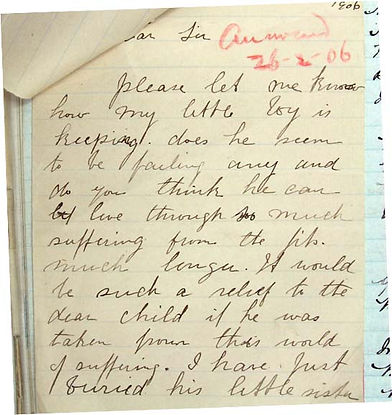 1906
Dear Sir Answered
26-2-06
please let me know
how my little boy is
keeping. does he seem
to be failing any and
do you think he can
live through so much
suffering from the fits.
much longer. It would
be such a relief to the
dear child if he was
taken from this world
of suffering. I have Just
buried his little sister